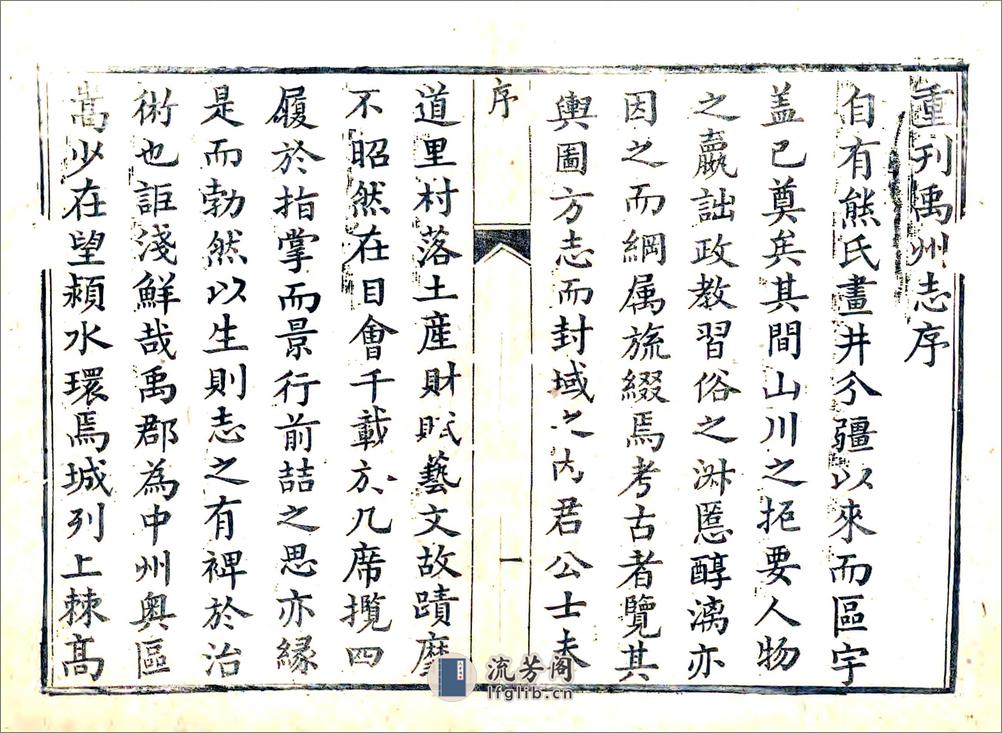 重刊禹州志序
自有熊氏畫井分疆以來而區宇
盖已奠矣其間山川之扼要人物
之嬴詘政教習俗之淋慝醇漓亦
因之而綱属旒綴焉考古者覽其
輿圖方志而封域之内君公士夫
序
一
道里村落土産財賦藝文故蹟靡
不昭然在目會千載於几席攬四
履於指掌而景行前喆之思亦縁
是而勃然以生則志之有裨於治
術也詎淺鮮哉禹郡為中州奥區
嵩少在望潁水環焉城列上棘髙
流芳阁
lfglib.cn